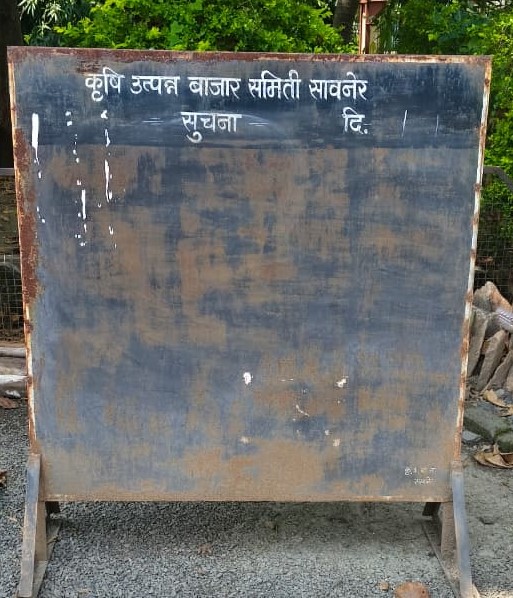 कृषि उत्पन्न बाजार समिती सावनेर
सुचना दि. / /